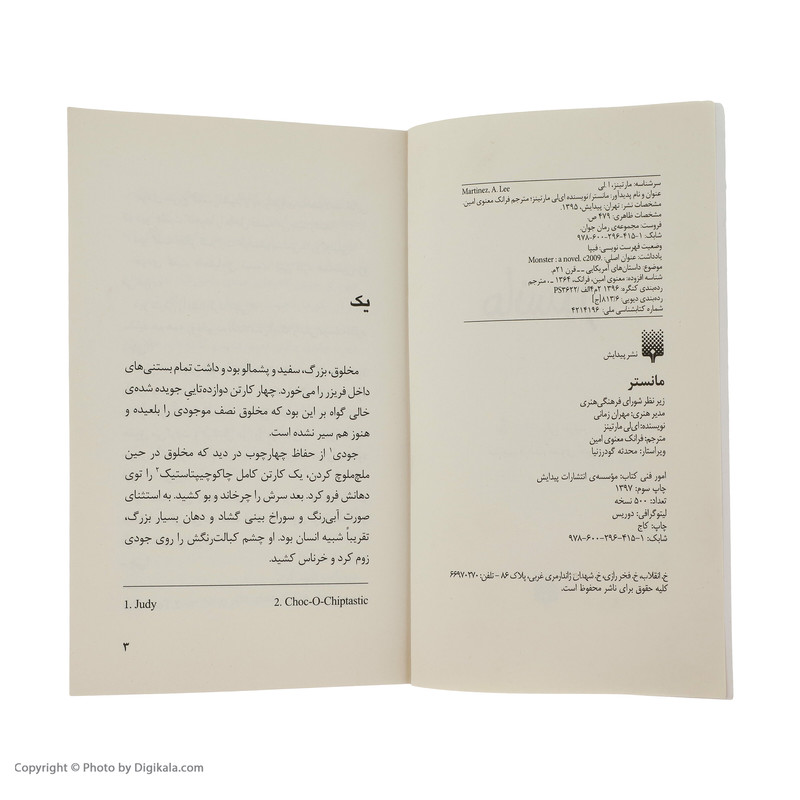 سرشناسه: مارتینز، ا. لی
Martinez, A. Lee
عنوان و نام پدیدآور: مانستر/نویسنده ای‌لی مارتینز؛ مترجم فرانک معنوی امین.
مشخصات نشر: تهران: پیدایش، ۱۳۹۵.
مشخصات ظاهری: ۴۷۹ ص
فروست: مجموعه‌ی رمان جوان.
شابک: ۱-۴۱۵-۲۹۶-۶۰۰-۹۷۸
وضعیت فهرست نویسی: فیپا
یادداشت: عنوان اصلی: Monster : a novel, c2009.
موضوع: داستان‌های آمریکایی -- قرن ۲۱م.
شناسه افزوده: معنوی امین، فرانک، ۱۳۶۴ -، مترجم
رده‌بندی کنگره: ۱۳۹۶ ۲م۴الف /PS۳۶۲۲
رده‌بندی دیویی: ۸۱۳/۶[ج]
شماره کتابشناسی ملی: ۴۲۱۴۱۹۶
نشر پیدایش
مانستر
زیر نظر شورای فرهنگی‌هنری
مدیر هنری: مهران زمانی
نویسنده: ای‌لی مارتینز
مترجم: فرانک معنوی امین
ویراستار: محدثه گودرزنیا
امور فنی کتاب: مؤسسه‌ی انتشارات پیدایش
چاپ سوم: ۱۳۹۷
تعداد: ۵۰۰ نسخه
لیتوگرافی: دوریس
چاپ: کاج
شابک: ۱-۴۱۵-۲۹۶-۶۰۰-۹۷۸
خ. انقلاب، خ. فخر رازی، خ. شهدای ژاندارمری غربی، پلاک ۸۶ - تلفن: ۶۶۹۷۰۲۷۰
کلیه حقوق برای ناشر محفوظ است.
یک
مخلوق، بزرگ، سفید و پشمالو بود و داشت تمام بستنی‌های
داخل فریزر را می‌خورد. چهار کارتن دوازده‌تاییِ جویده شده‌ی
خالی گواه بر این بود که مخلوق نصف موجودی را بلعیده و
هنوز هم سیر نشده است.
جودی۱ از حفاظ چهارچوب در دید که مخلوق در حین
ملچ‌ملوچ کردن، یک کارتن کامل چاکوچیپتاستیک۲ را توی
دهانش فرو کرد. بعد سرش را چرخاند و بو کشید. به استثنای
صورت آبی‌رنگ و سوراخ بینی گشاد و دهان بسیار بزرگ،
تقریباً شبیه انسان بود. او چشم کبالت‌رنگش را روی جودی
زوم کرد و خرناس کشید.
1. Judy 2. Choc-O-Chiptastic
۳
Copyright © Photo by Digikala.com